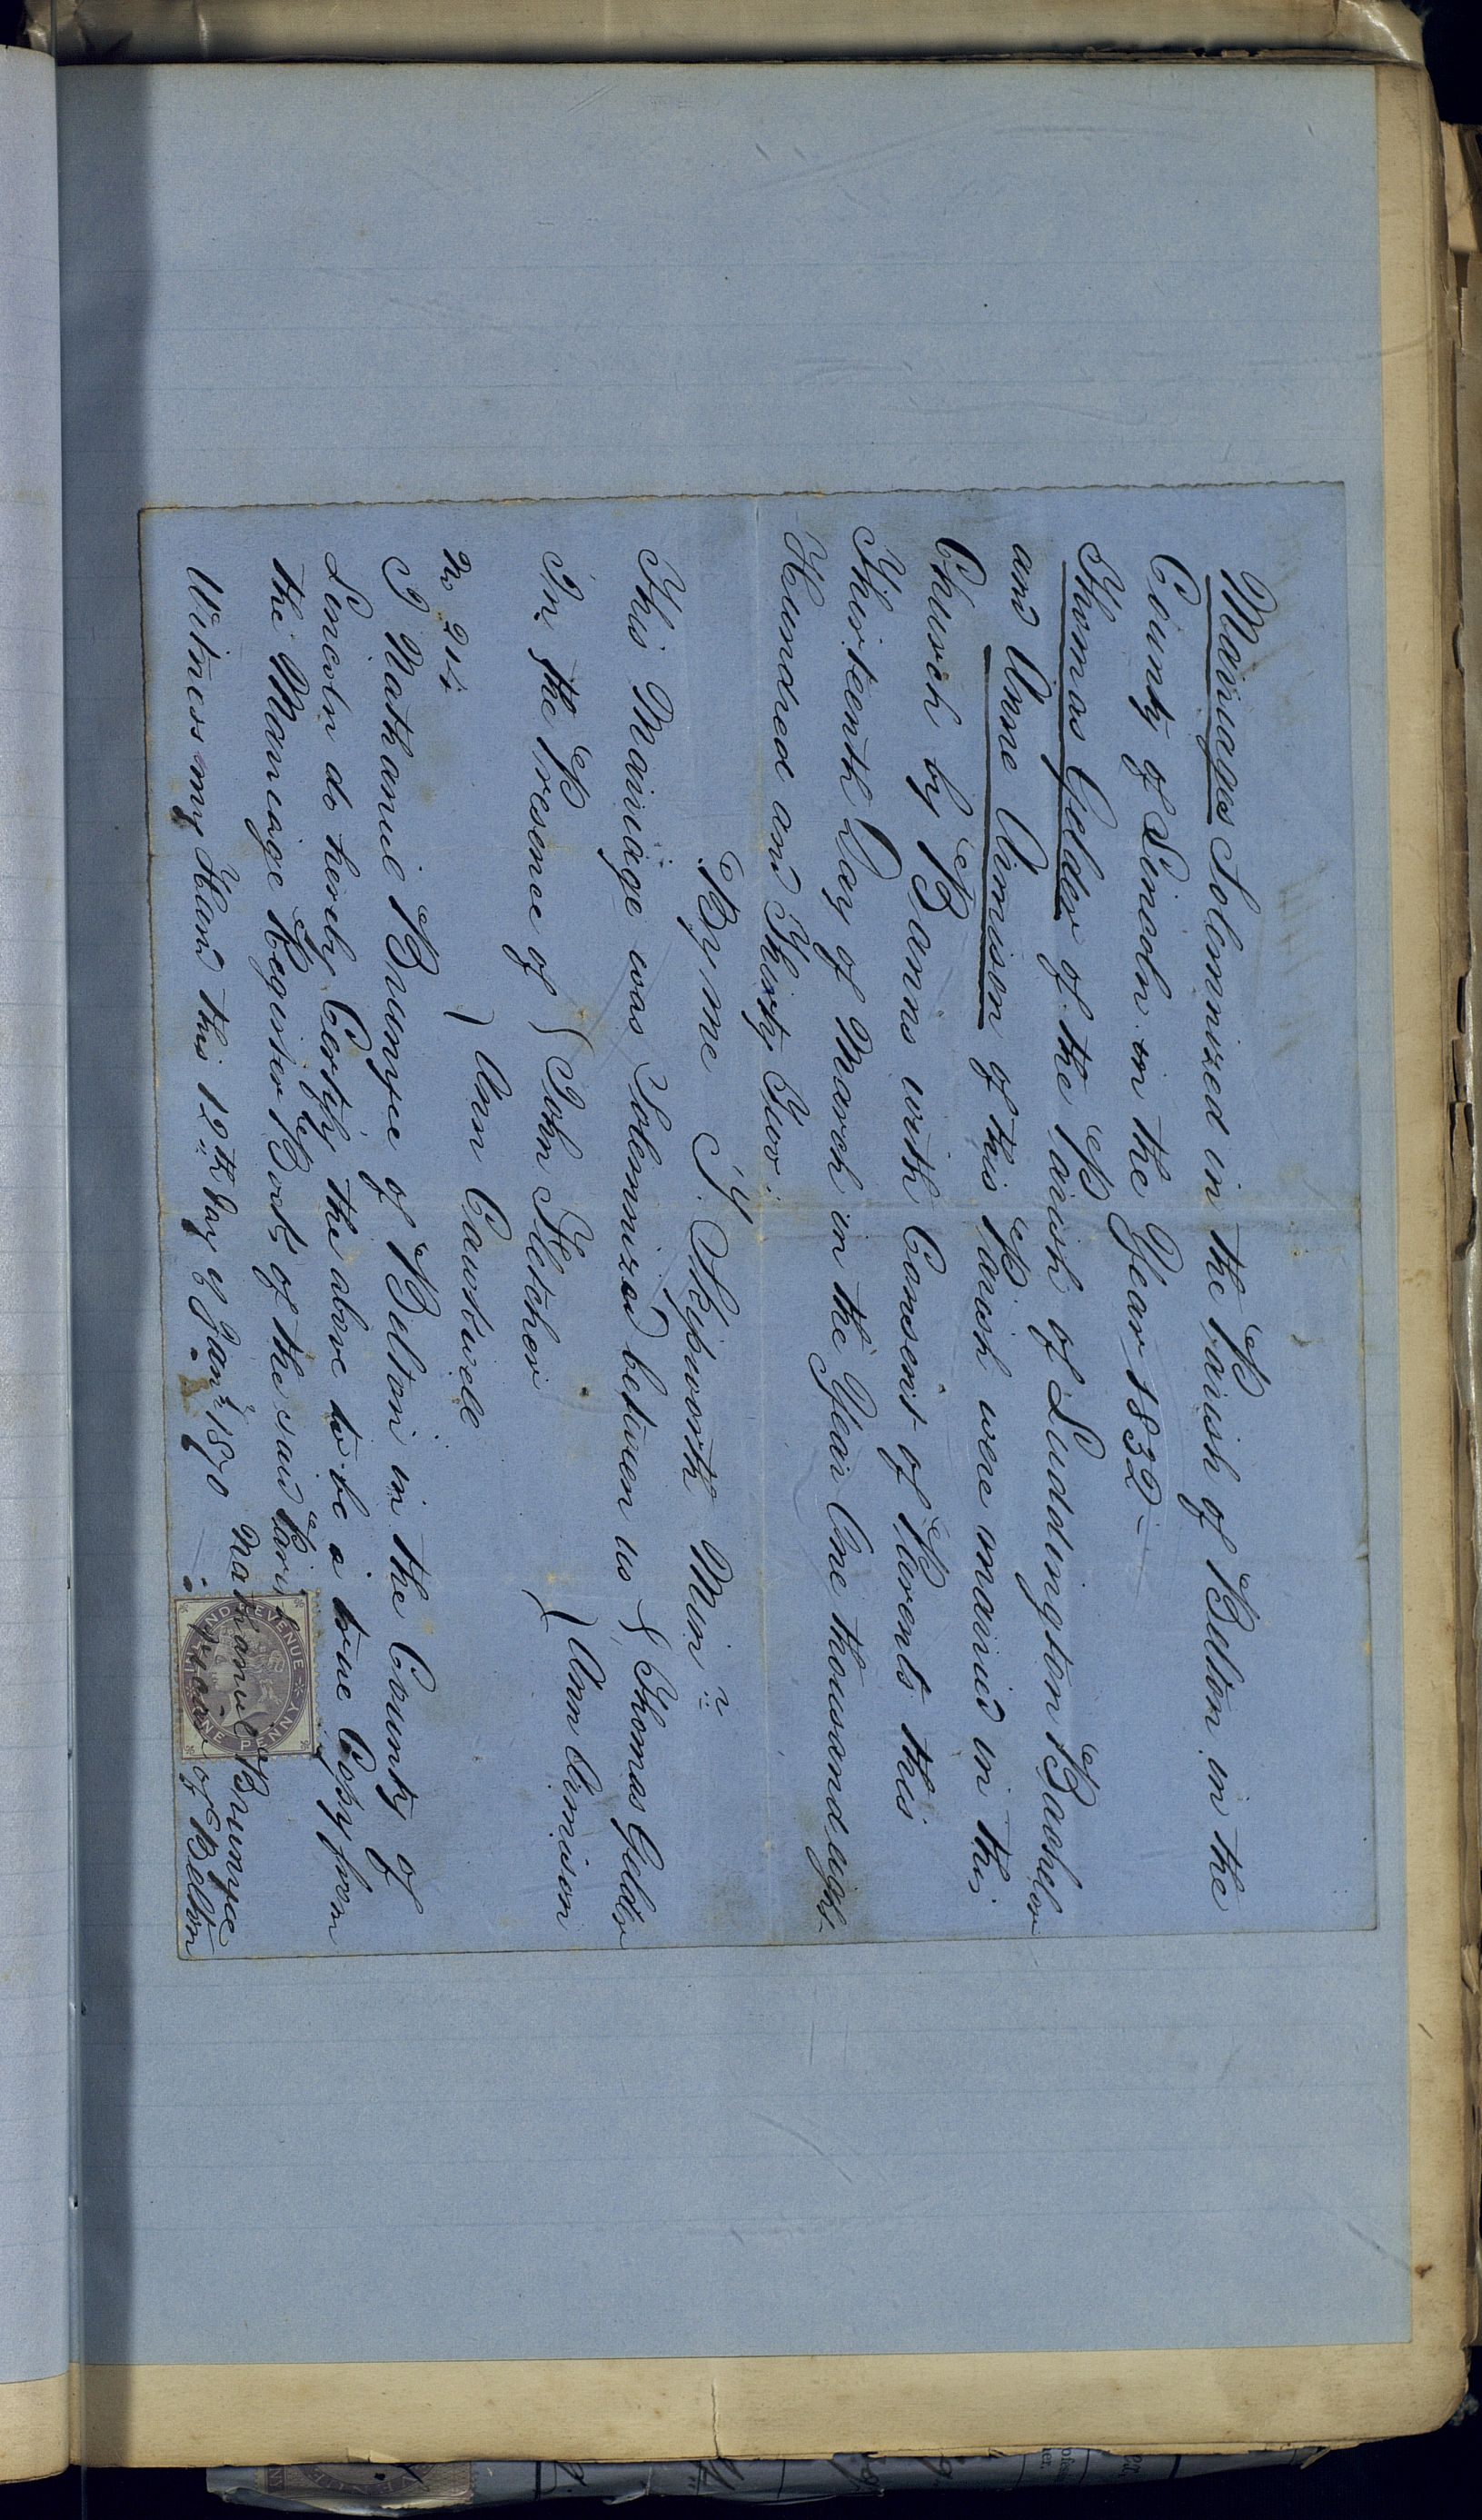 Marriages Solemnized in the Parish of Belton in the
County of Lincoln in the Year 1832 -
Thomas Gelder of the Parish of Luddington Bachelor
and Anne Armison of this Parish were married in this
Church by Banns with Consent of Parents this
Thirteenth Day of March in the Year One thousand eight
Hundred and Thirty Two:
By me Skipworth Minr
This Marriage was Solemnized between us { Thomas Gelder
{ Ann Armison
In the Presence of { John Fletcher
} Ann Cawkwell
No 214
I Nathaniel Brunyee of Belton in the County of
Lincoln do hereby Certify the above to be a true Copy from
the Marriage Register Book of the said Parish
Witness my Hand this 12th Day of Jany 1870
Nathaniel Brunyee
Vicar of Belton
INLAND REVENUE
ONE PENNY